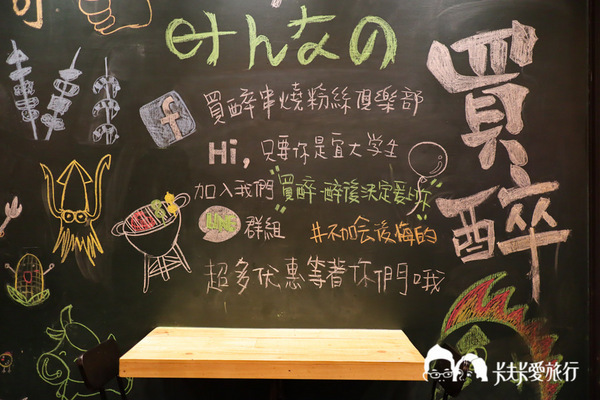 せんなの
買醉
f 買醉串燒粉絲俱樂部
Hi，只要你是宜大學生
加入我們 買醉-醉後決定愛上你
LINE 群組 #不加会後悔的
超多优惠等著你們哦
卡夫卡愛旅行